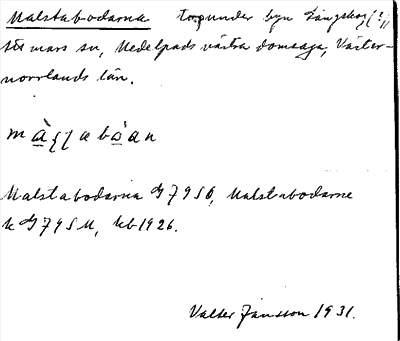 Malstabodarna torp under byn Långskog (?),
Stömars sn, Medelpads västra domsaga, Väster-
norrlands län.
Malstabodarna G 79 SÖ, Malstabodarne
k G 79 SM, kb 1926.
Valter Jansson 1931.